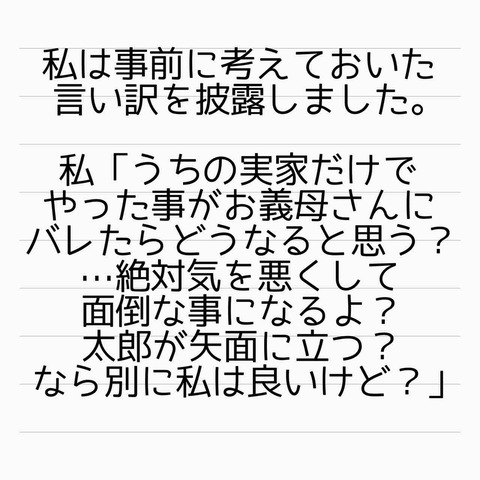 私は事前に考えておいた
言い訳を披露しました。
私「うちの実家だけで
やった事がお義母さんに
バレたらどうなると思う？
…絶対気を悪くして
面倒な事になるよ？
太郎が矢面に立つ？
なら別に私は良いけど？」